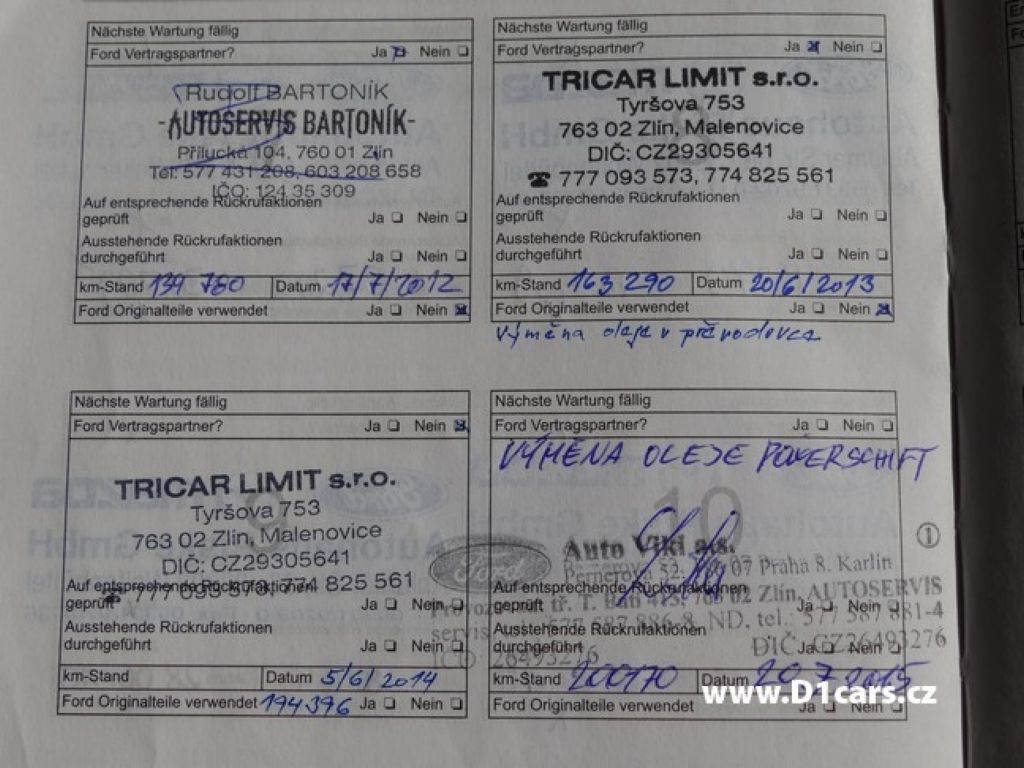 Nächste Wartung fällig
Ford Vertragspartner? Ja Nein
Rudolf BARTONÍK
-AUTOSERVIS BARTONÍK-
Přílucká 104, 760 01 Zlín
Tel: 577 431 208, 603 208 658
IČO: 124 35 309
Auf entsprechende Rückrufaktionen
geprüft Ja Nein
Ausstehende Rückrufaktionen
durchgeführt Ja Nein
km-Stand 139 760 Datum 17/7/2012
Ford Originalteile verwendet Ja Nein
Nächste Wartung fällig
Ford Vertragspartner? Ja Nein
TRICAR LIMIT s.r.o.
Tyršova 753
763 02 Zlín, Malenovice
DIČ: CZ29305641
☎ 777 093 573, 774 825 561
Auf entsprechende Rückrufaktionen
geprüft Ja Nein
Ausstehende Rückrufaktionen
durchgeführt Ja Nein
km-Stand 163 290 Datum 20/6/2013
Ford Originalteile verwendet Ja Nein
výměna oleje v převodovce
Nächste Wartung fällig
Ford Vertragspartner? Ja Nein
9
TRICAR LIMIT s.r.o.
Tyršova 753
763 02 Zlín, Malenovice
DIČ: CZ29305641
☎ 777 093 573, 774 825 561
Auf entsprechende Rückrufaktionen
geprüft Ja Nein
Ausstehende Rückrufaktionen
durchgeführt Ja Nein
km-Stand Datum 5/6/2014
Ford Originalteile verwendet 194396 Ja Nein
Nächste Wartung fällig
Ford Vertragspartner? Ja Nein
VÝMĚNA OLEJE POWERSCHIFT
10
Ford
Auto Viki a.s. 1
07 Praha 8. Karlín
Auf entsprechende Rückrufaktionen
tř. T. Bati 02 Zlín, AUTOSERVIS
geprüft Ja Nein
ND, tel.: 577 587 881-4
Ausstehende Rückrufaktionen
IČO 26493276 DIČ CZ26493276
durchgeführt Ja Nein
km-Stand 200170 Datum 20.7.2015
Ford Originalteile verwendet Ja Nein
www.D1cars.cz